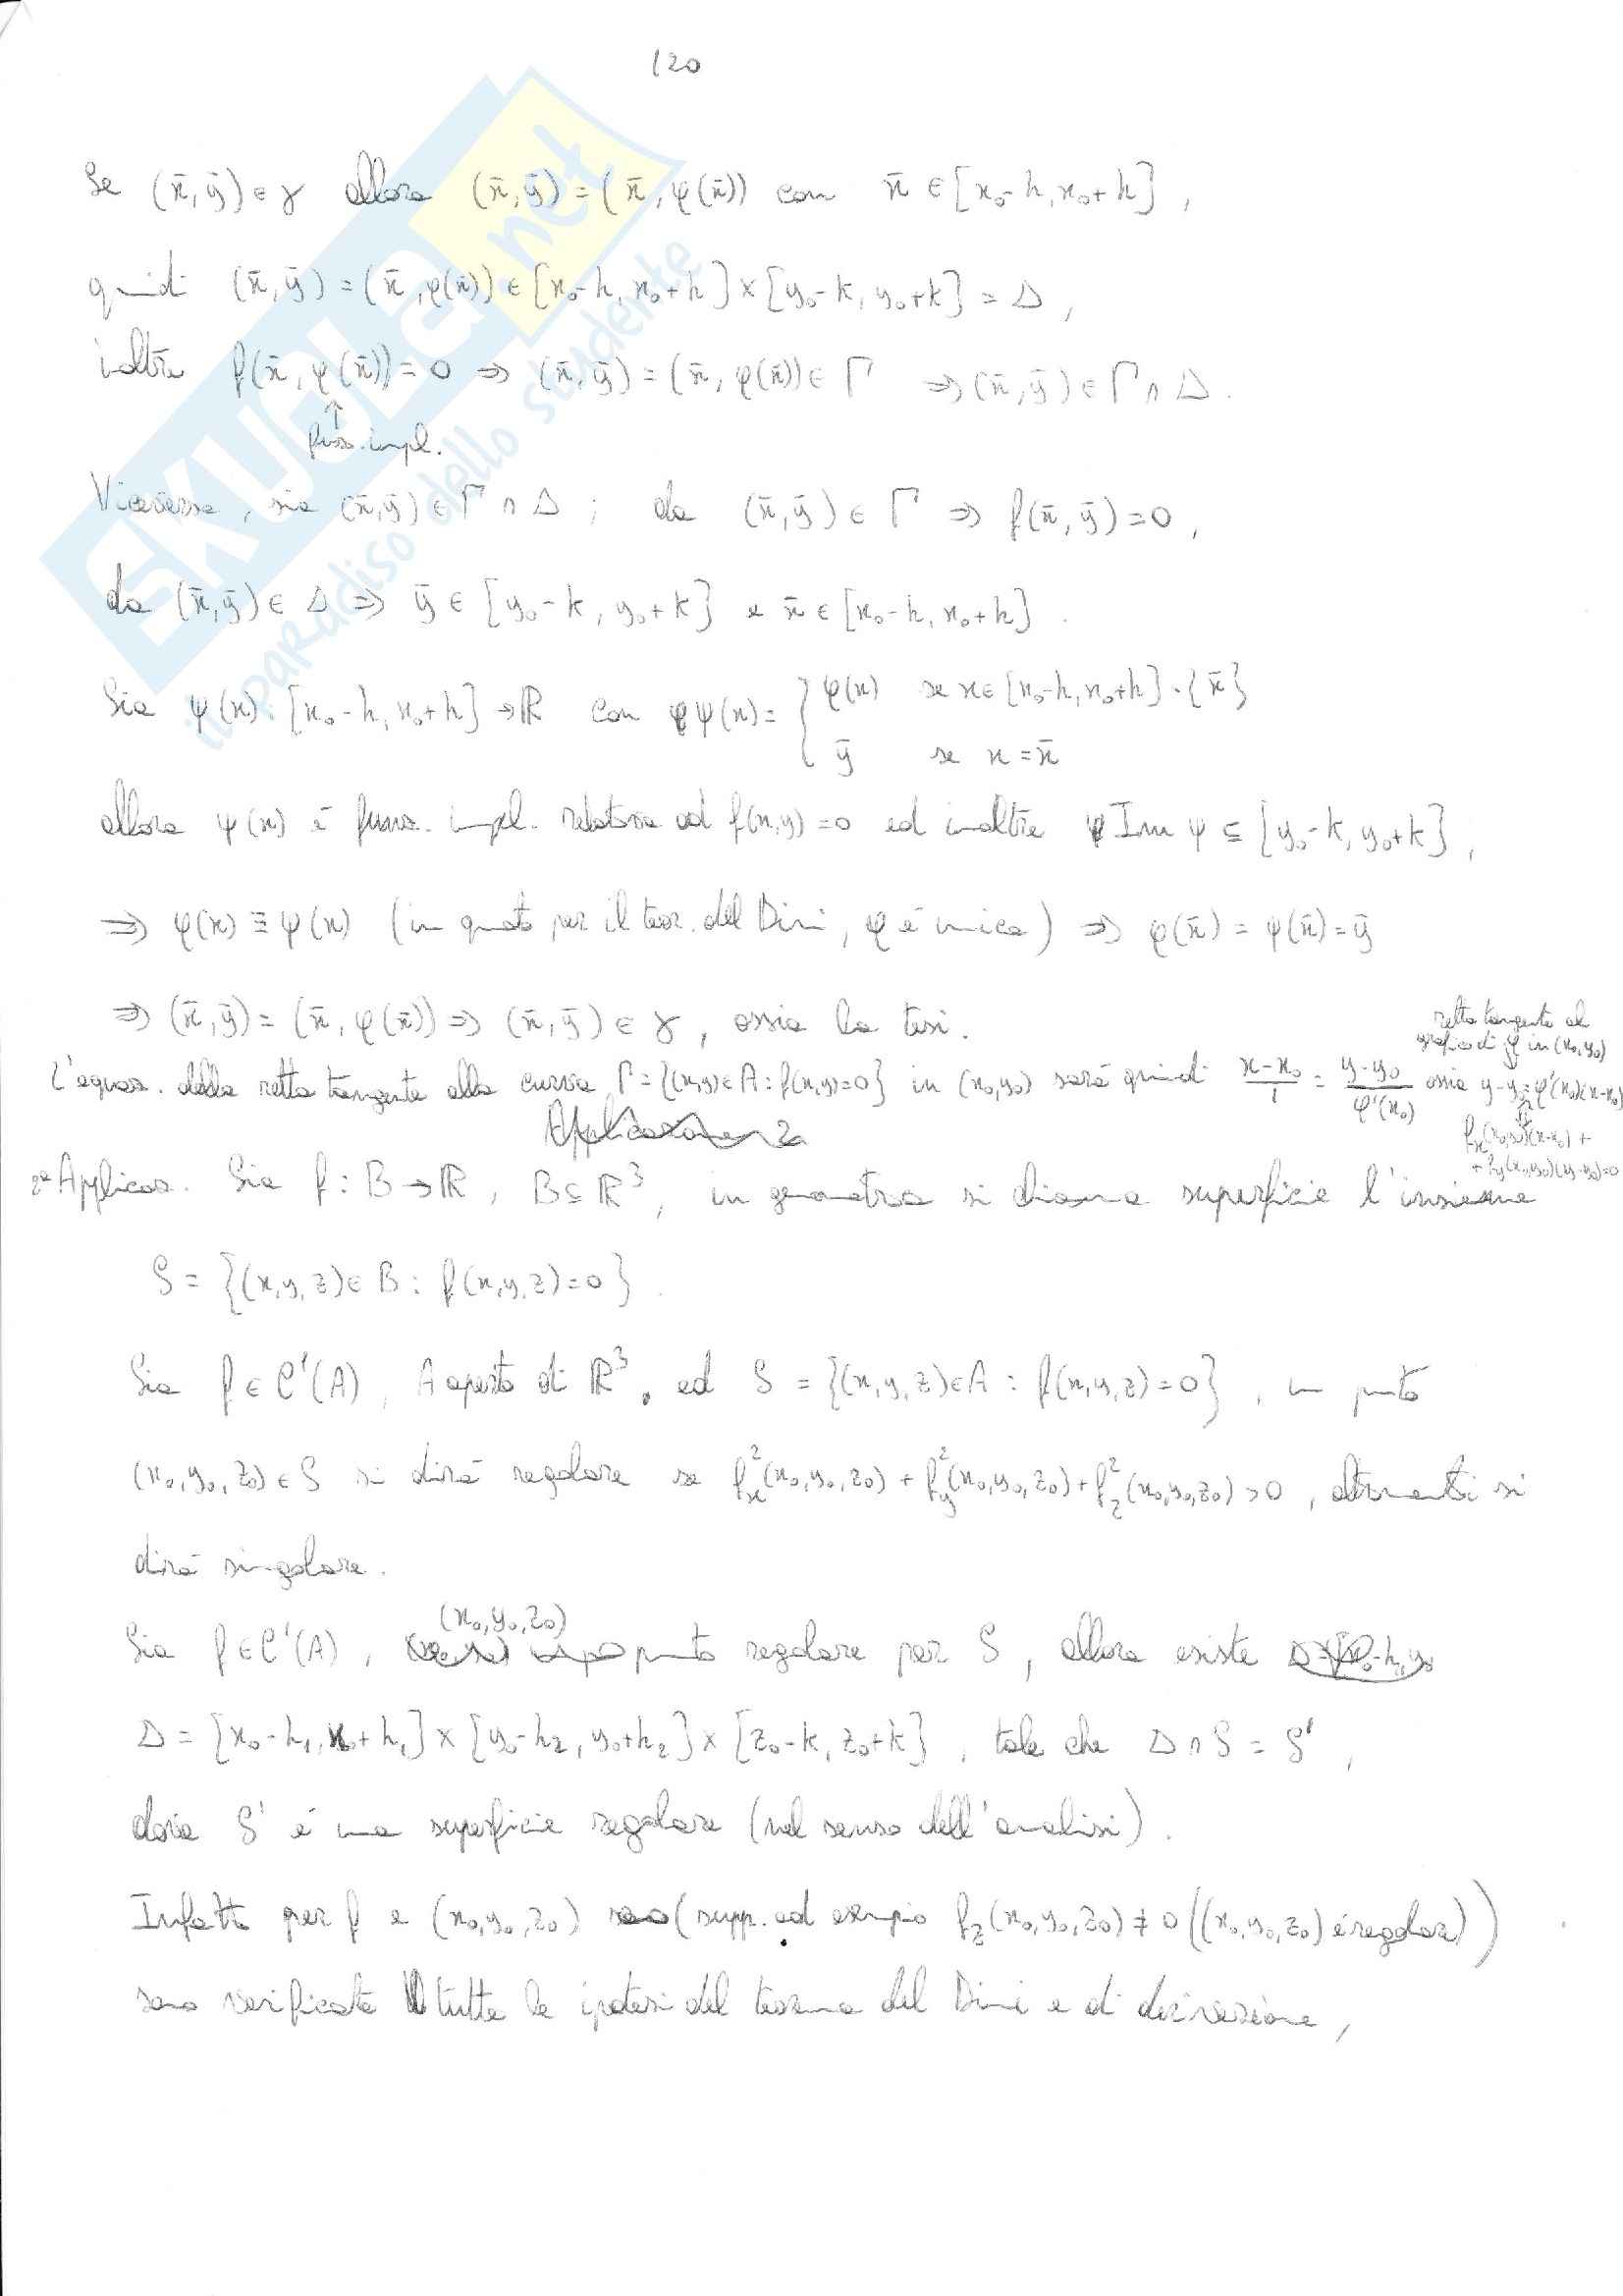 120
SKUOLA.net
il paradiso dello studente
Se (x̄,ȳ)∈γ allora (x̄,ȳ)=(x̄,φ(x̄)) con x̄∈[x₀-h,x₀+h],
quindi (x̄,ȳ)=(x̄,φ(x̄))∈[x₀-h,x₀+h]×[y₀-k,y₀+k]=Δ,
inoltre f(x̄,φ(x̄))=0 ⇒ (x̄,ȳ)=(x̄,φ(x̄))∈Γ ⇒(x̄,ȳ)∈Γ∩Δ.
↑
funz. impl.
Viceversa, sia (x̄,ȳ)∈Γ∩Δ; da (x̄,ȳ)∈Γ ⇒ f(x̄,ȳ)=0,
da (x̄,ȳ)∈Δ ⇒ ȳ∈[y₀-k,y₀+k] e x̄∈[x₀-h,x₀+h].
Sia ψ(x):[x₀-h,x₀+h]→ℝ con ψ(x)={φ(x) se x∈[x₀-h,x₀+h]-{x̄}
ȳ se x=x̄
allora ψ(x) è funz. impl. relativa ad f(x,y)=0 ed inoltre Im ψ⊆[y₀-k,y₀+k],
⇒ φ(x)≡ψ(x) (in quanto per il teor. del Dini, φ è unica) ⇒ φ(x̄)=ψ(x̄)=ȳ
⇒ (x̄,ȳ)=(x̄,φ(x̄))⇒(x̄,ȳ)∈γ, ossia la tesi.
retta tangente al
grafico di φ in (x₀,y₀)
L'equaz. della retta tangente alla curva Γ={(x,y)∈A:f(x,y)=0} in (x₀,y₀) sarà quindi (x-x₀)/1=(y-y₀)/φ'(x₀) ossia y-y₀=φ'(x₀)(x-x₀)
⇕
fₓ(x₀,y₀)(x-x₀)+
+f_y(x₀,y₀)(y-y₀)=0
Applicazione 2
2ª Applicaz. Sia f:B→ℝ, B⊆ℝ³, in geometria si chiama superficie l'insieme
S={(x,y,z)∈B:f(x,y,z)=0}.
Sia f∈C¹(A), A aperto di ℝ³, ed S={(x,y,z)∈A:f(x,y,z)=0}, un punto
(x₀,y₀,z₀)∈S si dirà regolare se fₓ²(x₀,y₀,z₀)+f_y²(x₀,y₀,z₀)+f_z²(x₀,y₀,z₀)>0, altrimenti si
dirà singolare.
Sia f∈C¹(A), (x₀,y₀,z₀) punto regolare per S, allora esiste
Δ=[x₀-h₁,x₀+h₁]×[y₀-h₂,y₀+h₂]×[z₀-k,z₀+k], tale che Δ∩S=S',
dove S' è una superficie regolare (nel senso dell'analisi).
Infatti per f e (x₀,y₀,z₀) (supp. ad esempio f_z(x₀,y₀,z₀)≠0 ((x₀,y₀,z₀) è regolare))
sono verificate tutte le ipotesi del teorema del Dini e di derivazione,